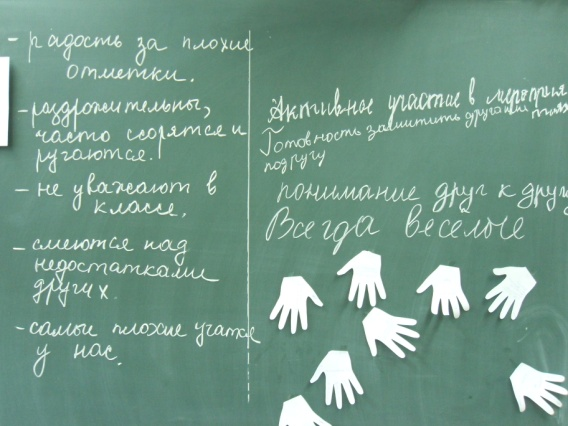 - радость за плохие
отметки.
- раздрожительны,
часто ссорятся и
ругаются.
- не уважают в
классе.
- смеются над
недостатками
других.
- самые плохие
у нас.
Активное участие в мероприя
тиях
Готовность защитить друга или
подругу
понимание друг к другу
Всегда весёлые